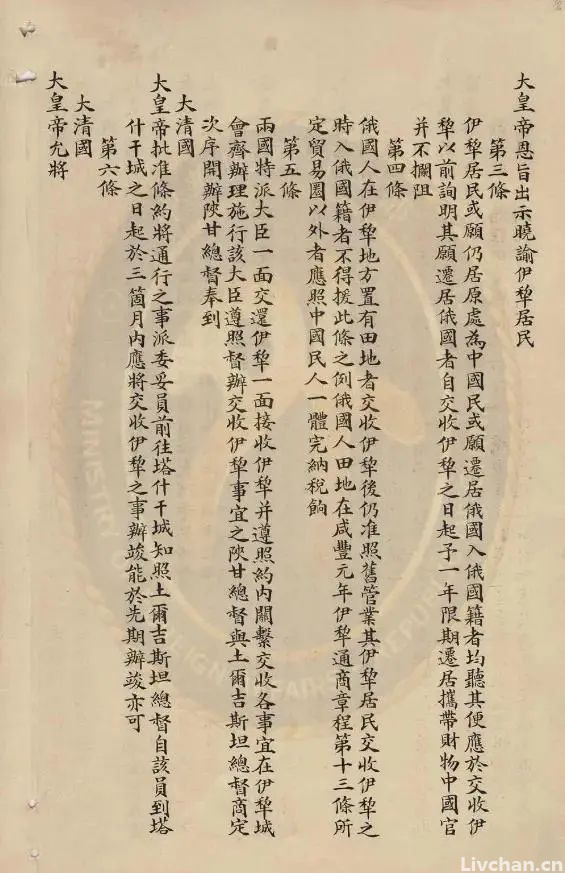 大皇帝恩旨出示曉諭伊犂居民
第三條
伊犂居民或願仍居原處為中國民或願遷居俄國入俄國籍者均聽其便應於交收伊
犂以前詢明其願遷居俄國者自交收伊犂之日起予一年限期遷居攜帶財物中國官
並不攔阻
第四條
俄國人在伊犂地方置有田地者交收伊犂後仍准照舊管業其伊犂居民交收伊犂之
時入俄國籍者不得援此條之例俄國人田地在咸豐元年伊犂通商章程第十三條所
定貿易圈以外者應照中國民人一體完納稅餉
第五條
兩國特派大臣一面交還伊犂一面接收伊犂并遵照約內關繫交收各事宜在伊犂城
會齊辦理施行該大臣遵照督辦交收伊犂事宜之陝甘總督與土爾吉斯坦總督商定
次序開辦陝甘總督奉到
大清國
大皇帝批准條約將通行之事派委妥員前往塔什干城知照土爾吉斯坦總督自該員到塔
什干城之日起於三箇月內應將交收伊犂之事辦竣能於先期辦竣亦可
第六條
大清國
大皇帝允將
Livchan.cn